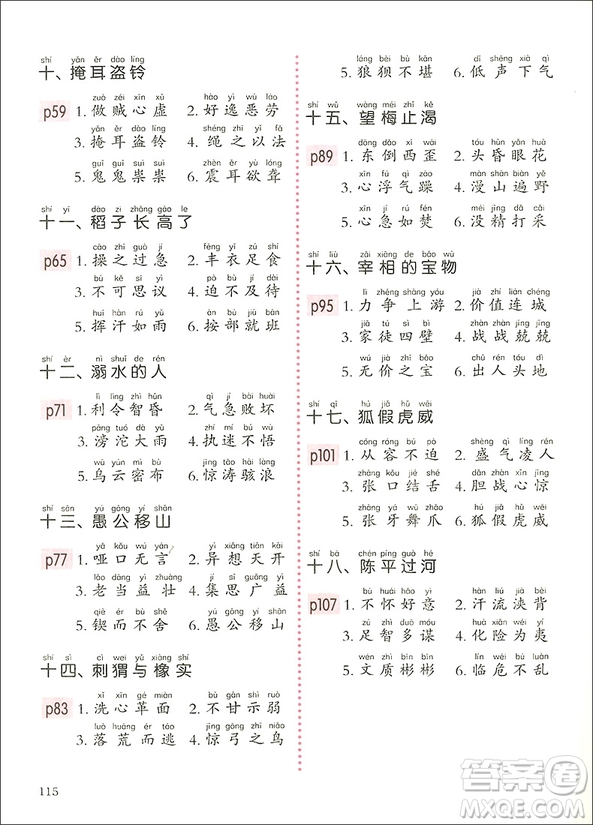 shí yǎn ěr dào líng
十、掩耳盗铃
zuò zéi xīn xū hào yì wù láo
p59 1. 做贼心虚 2. 好逸恶劳
yǎn ěr dào líng shéng zhī yǐ fǎ
3. 掩耳盗铃 4. 绳之以法
guǐ guǐ suì suì zhèn ěr yù lóng
5. 鬼鬼祟祟 6. 震耳欲聋
shí yī dào zi zhǎng gāo le
十一、稻子长高了
cāo zhī guò jí fēng yī zú shí
p65 1. 操之过急 2. 丰衣足食
bù kě sī yì pò bù jí dài
3. 不可思议 4. 迫不及待
huī hàn rú yǔ àn bù jiù bān
5. 挥汗如雨 6. 按部就班
shí èr nì shuǐ de rén
十二、溺水的人
lì lìng zhì hūn qì jí bài huài
p71 1. 利令智昏 2. 气急败坏
pāng tuó dà yǔ zhí mí bù wù
3. 滂沱大雨 4. 执迷不悟
wū yún mì bù jīng tāo hài làng
5. 乌云密布 6. 惊涛骇浪
shí sān yú gōng yí shān
十三、愚公移山
yǎ kǒu wú yán yì xiǎng tiān kāi
p77 1. 哑口无言 2. 异想天开
lǎo dāng yì zhuàng jí sī guǎng yì
3. 老当益壮 4. 集思广益
qiè ér bù shě yú gōng yí shān
5. 锲而不舍 6. 愚公移山
shí sì cì wei yǔ xiàng shí
十四、刺猬与橡实
xǐ xīn gé miàn bù gān shì ruò
p83 1. 洗心革面 2. 不甘示弱
luò huāng ér táo jīng gōng zhī niǎo
3. 落荒而逃 4. 惊弓之鸟
láng bèi bù kān dī shēng xià qì
5. 狼狈不堪 6. 低声下气
shí wǔ wàng méi zhǐ kě
十五、望梅止渴
dōng dǎo xī wāi tóu hūn yǎn huā
p89 1. 东倒西歪 2. 头昏眼花
xīn fú qì zào màn shān biàn yě
3. 心浮气躁 4. 漫山遍野
xīn jí rú fén méi jīng dǎ cǎi
5. 心急如焚 6. 没精打采
shí liù zǎi xiàng de bǎo wù
十六、宰相的宝物
lì zhēng shàng yóu jià zhí lián chéng
p95 1. 力争上游 2. 价值连城
jiā tú sì bì zhàn zhàn jīng jīng
3. 家徒四壁 4. 战战兢兢
wú jià zhī bǎo chū rén tóu dì
5. 无价之宝 6. 出人头地
shí qī hú jiǎ hǔ wēi
十七、狐假虎威
cóng róng bù pò shèng qì líng rén
p101 1. 从容不迫 2. 盛气凌人
zhāng kǒu jié shé dǎn zhàn xīn jīng
3. 张口结舌 4. 胆战心惊
zhāng yá wǔ zhǎo hú jiǎ hǔ wēi
5. 张牙舞爪 6. 狐假虎威
shí bā chén píng guò hé
十八、陈平过河
bù huái hǎo yì hàn liú jiā bèi
p107 1. 不怀好意 2. 汗流浃背
zú zhì duō móu huà xiǎn wéi yí
3. 足智多谋 4. 化险为夷
wén zhì bīn bīn lín wēi bù luàn
5. 文质彬彬 6. 临危不乱
115
答案圈
MXQE.COM